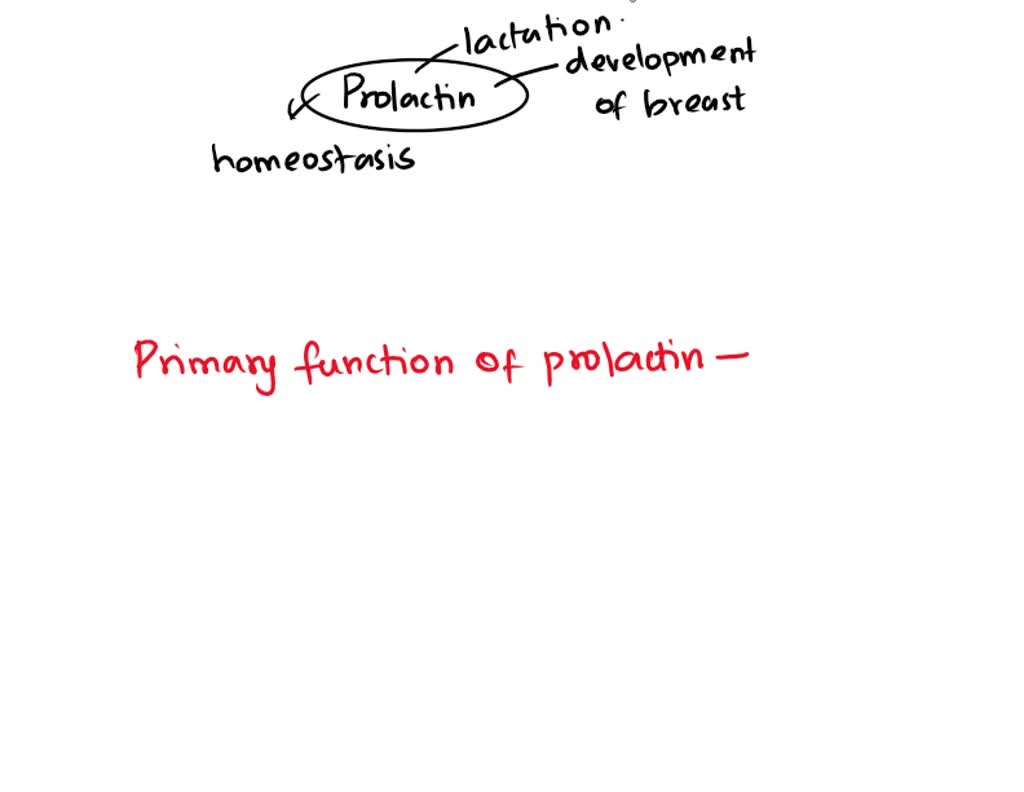 lactation.
development
of breast
Prolactin
homeostasis
Primary function of prolactin —